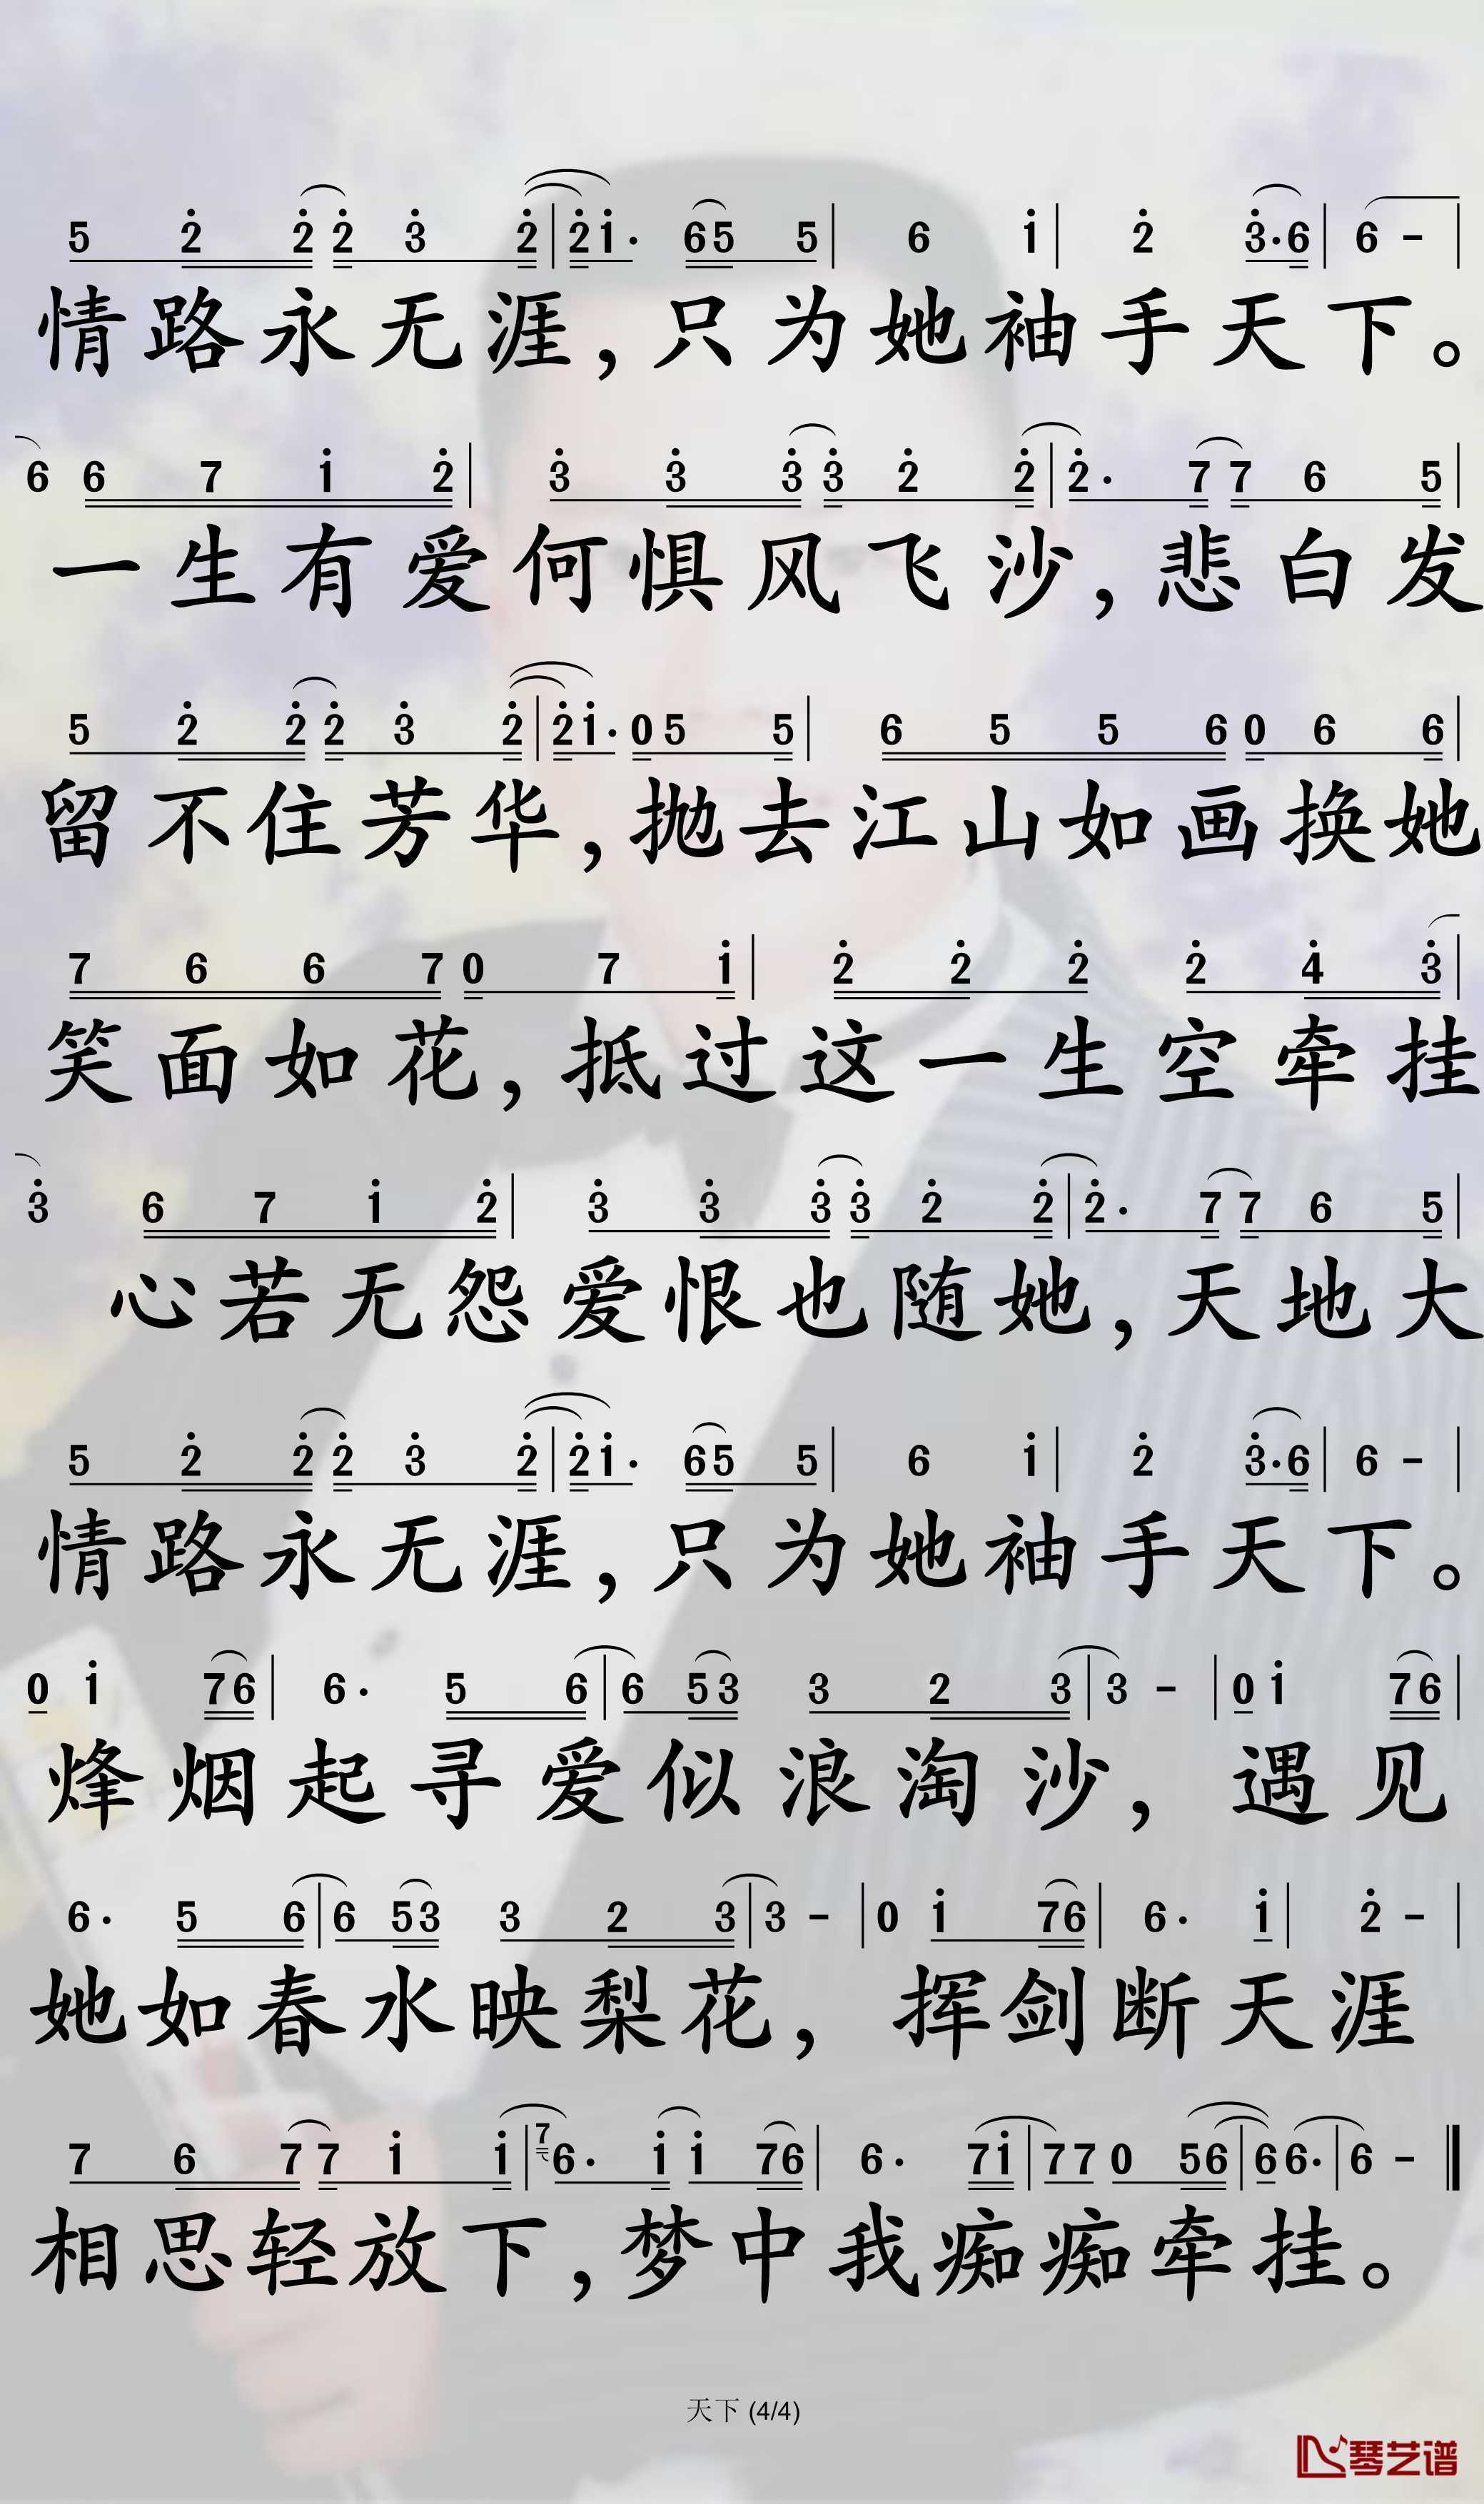 5 2 2 2 3 2 | 2 1· 6 5 5 | 6 1 | 2 3·6 | 6 - |
情路永无涯，只为她袖手天下。
6 6 7 1 2 | 3 3 3 3 2 2 | 2· 7 7 6 5 |
一生有爱何惧风飞沙，悲白发
5 2 2 2 3 2 | 2 1· 0 5 5 | 6 5 5 6 0 6 6 |
留不住芳华，抛去江山如画换她
7 6 6 7 0 7 1 | 2 2 2 2 4 3 |
笑面如花，抵过这一生空牵挂
3 6 7 1 2 | 3 3 3 3 2 2 | 2· 7 7 6 5 |
心若无怨爱恨也随她，天地大
5 2 2 2 3 2 | 2 1· 6 5 5 | 6 1 | 2 3·6 | 6 - |
情路永无涯，只为她袖手天下。
0 1 7 6 | 6· 5 6 | 6 5 3 3 2 3 | 3 - | 0 1 7 6 |
烽烟起寻爱似浪淘沙，遇见
6· 5 6 | 6 5 3 3 2 3 | 3 - | 0 1 7 6 | 6· 1 | 2 - |
她如春水映梨花，挥剑断天涯
7 6 7 7 1 1 | 7 6· 1 1 7 6 | 6· 7 1 | 7 7 0 5 6 | 6 6· | 6 - |
相思轻放下，梦中我痴痴牵挂。
天下 (4/4)
琴艺谱